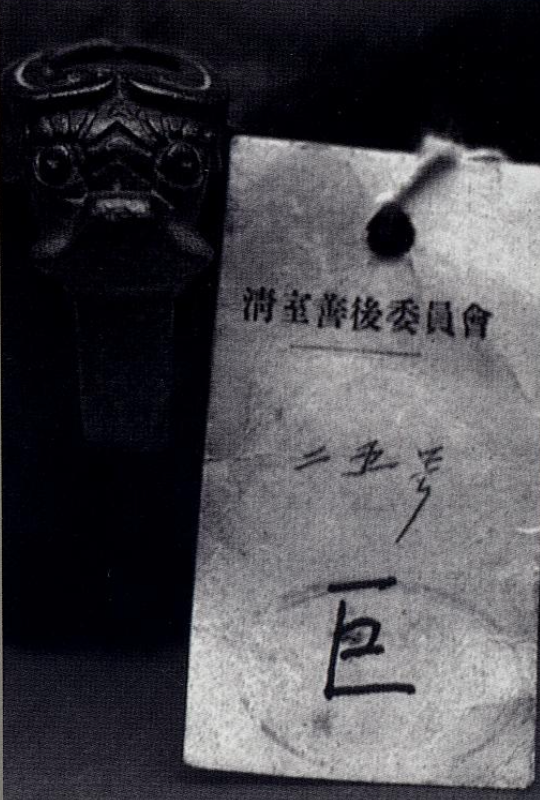 清室善後委員會
二五号
巨